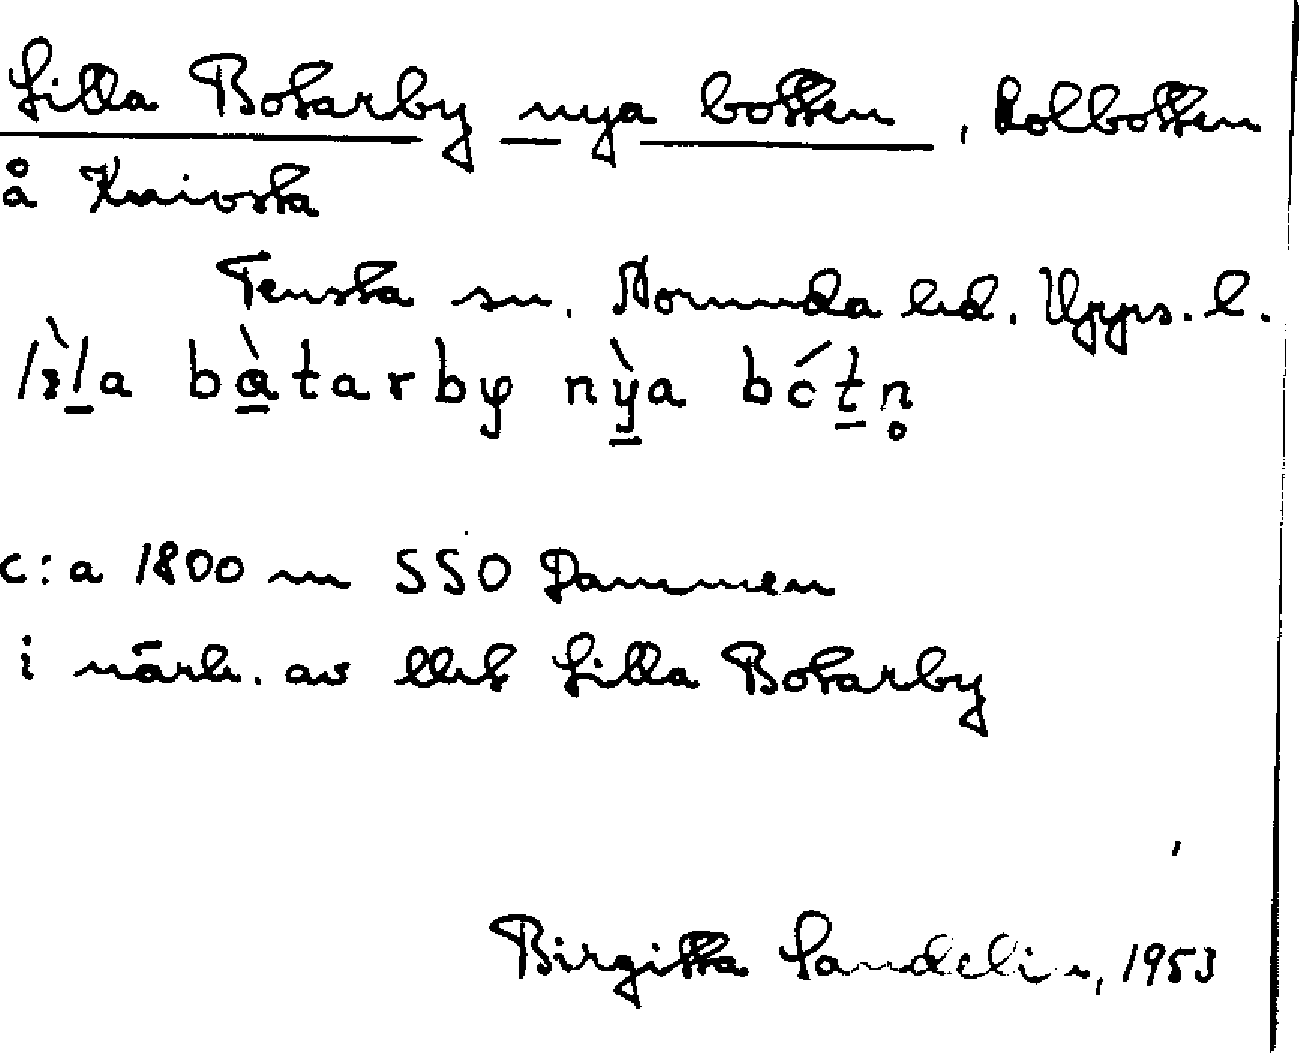 Lilla Botarby nya botten, Kolbotten
å Knivsta
Tensta sn. Norunda hd. Upps. l.
lìl̲a bà̲tarby nỳ̲a bót̲n̥
c:a 1800 m SSO Dammen
i närh. av lht Lilla Botarby
Birgitta Sandelin, 1953